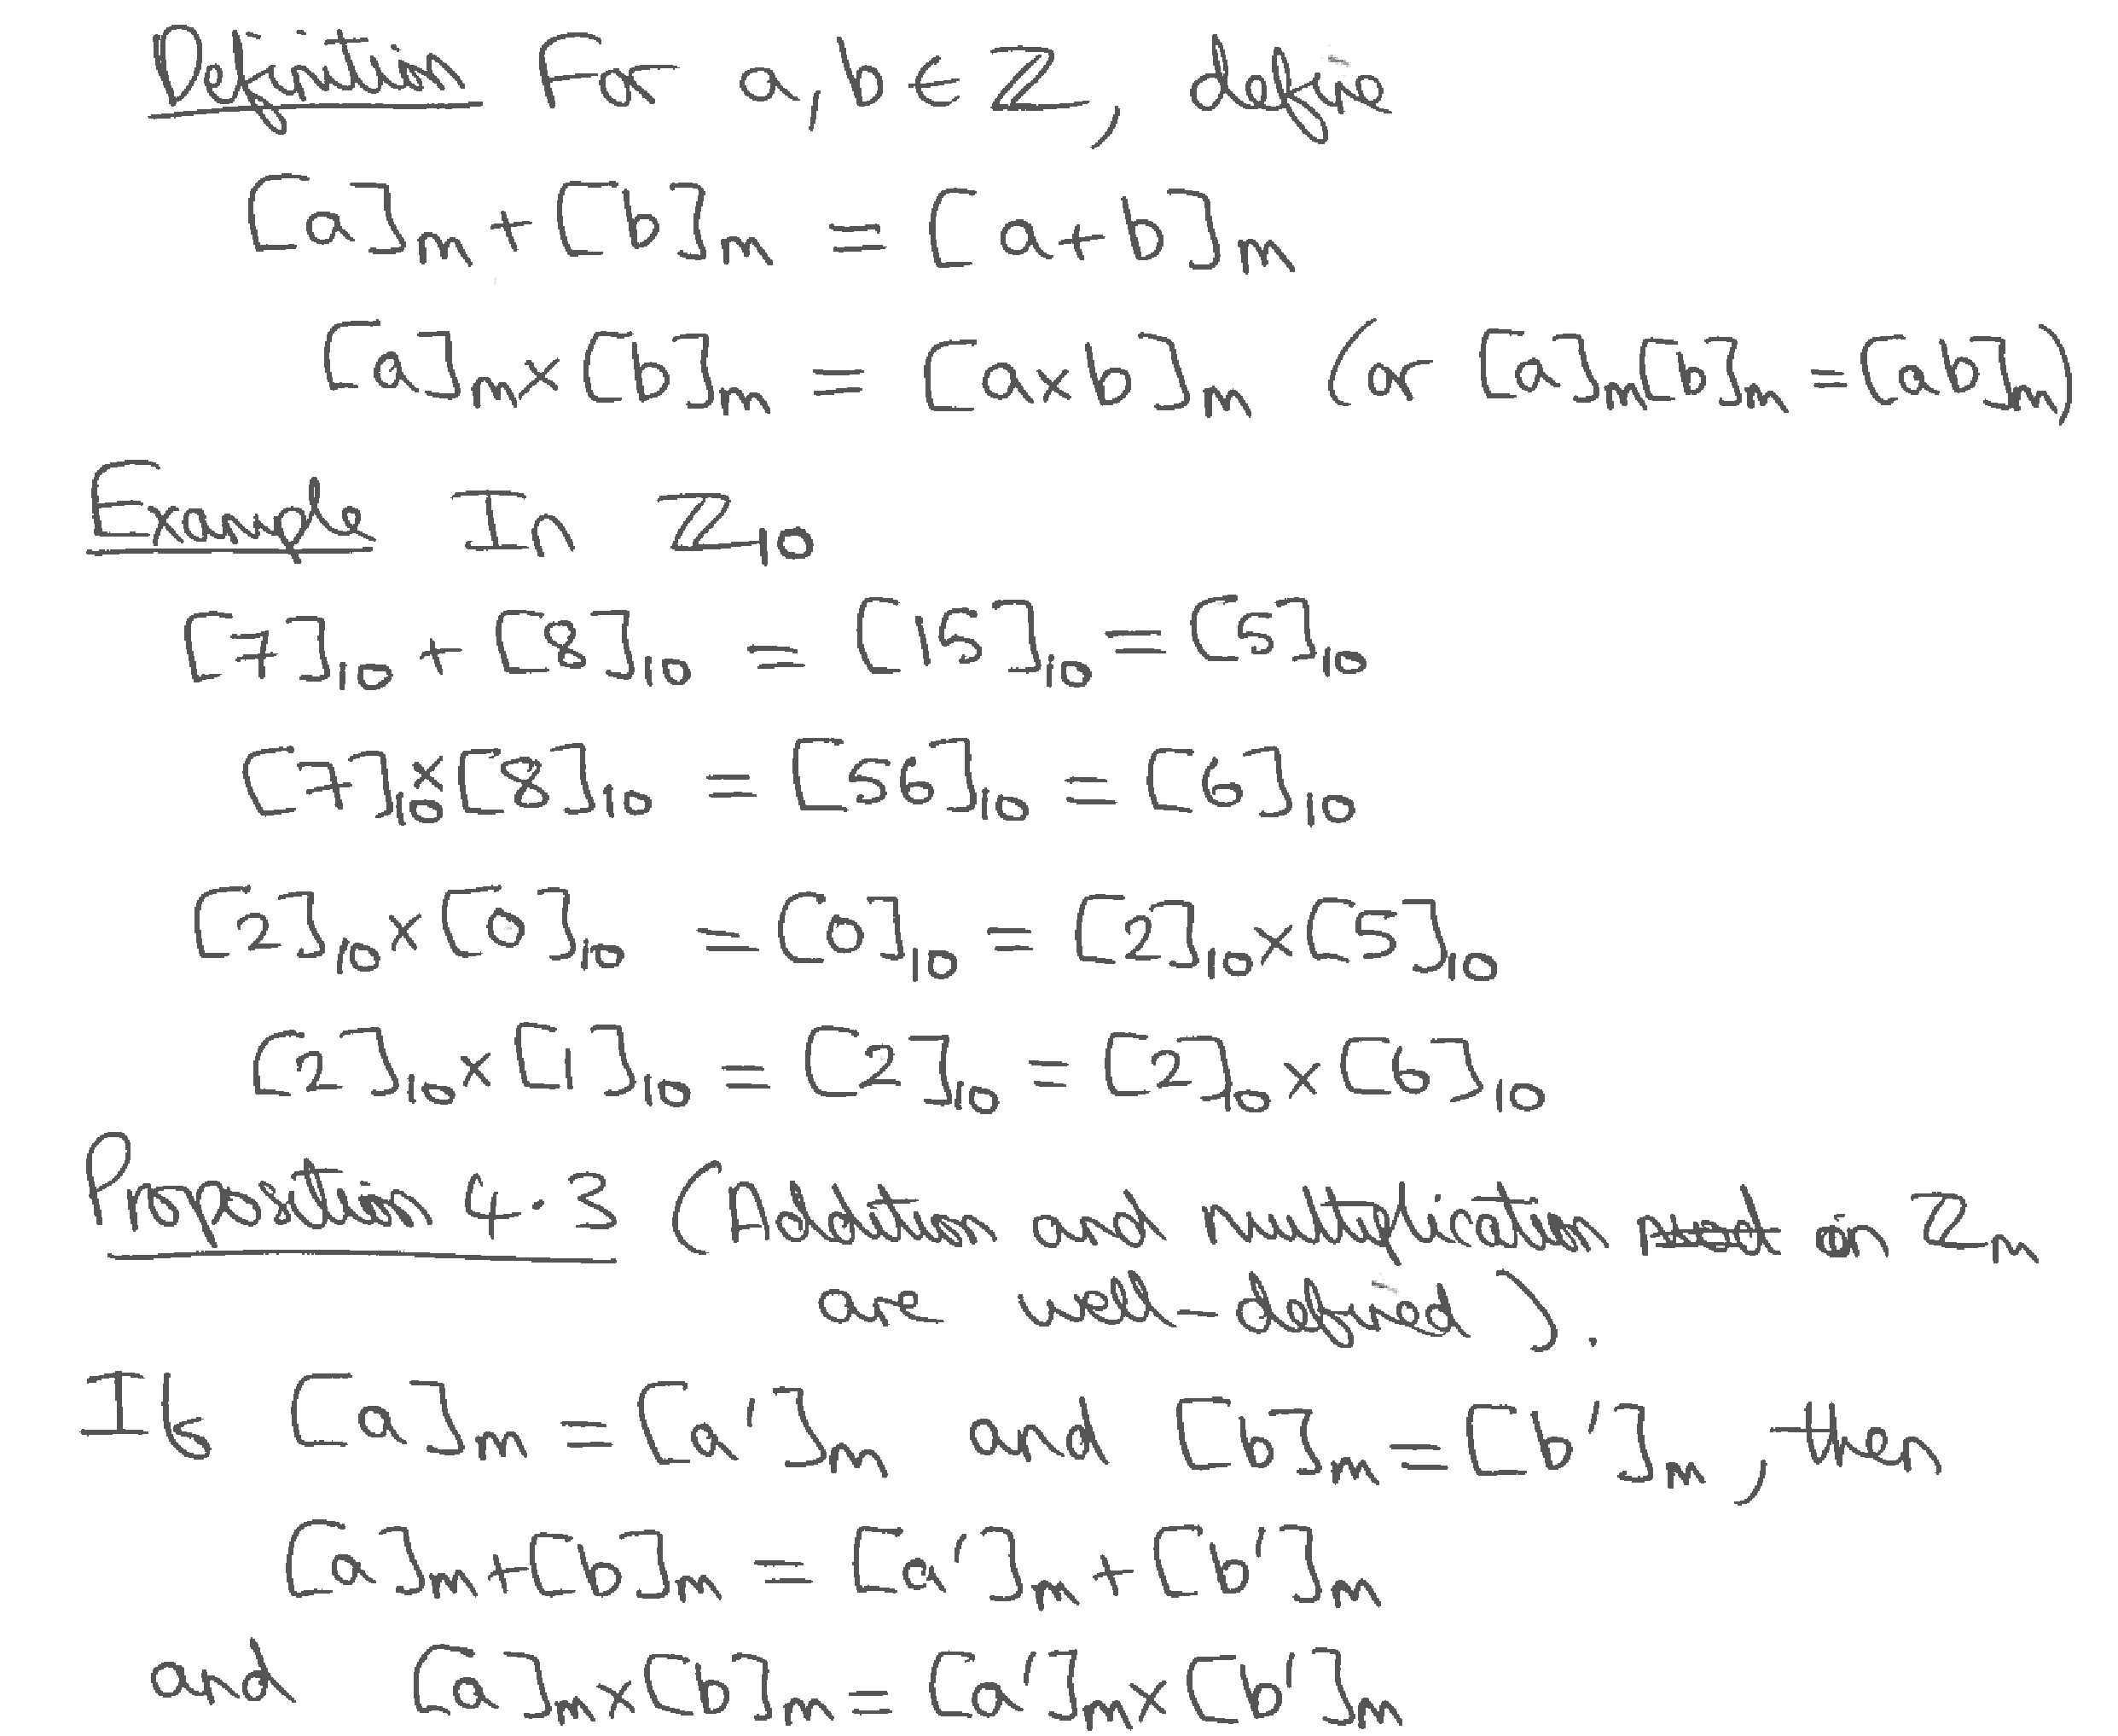 Definition For a, b ∈ ℤ, define
[a]ₘ + [b]ₘ = [a+b]ₘ
[a]ₘ × [b]ₘ = [a×b]ₘ (or [a]ₘ[b]ₘ = [ab]ₘ)
Example In ℤ₁₀
[7]₁₀ + [8]₁₀ = [15]₁₀ = [5]₁₀
[7]₁₀ × [8]₁₀ = [56]₁₀ = [6]₁₀
[2]₁₀ × [0]₁₀ = [0]₁₀ = [2]₁₀ × [5]₁₀
[2]₁₀ × [1]₁₀ = [2]₁₀ = [2]₁₀ × [6]₁₀
Proposition 4.3 (Addition and multiplication on ℤₘ
are well-defined).
If [a]ₘ = [a']ₘ and [b]ₘ = [b']ₘ, then
[a]ₘ + [b]ₘ = [a']ₘ + [b']ₘ
and [a]ₘ × [b]ₘ = [a']ₘ × [b']ₘ